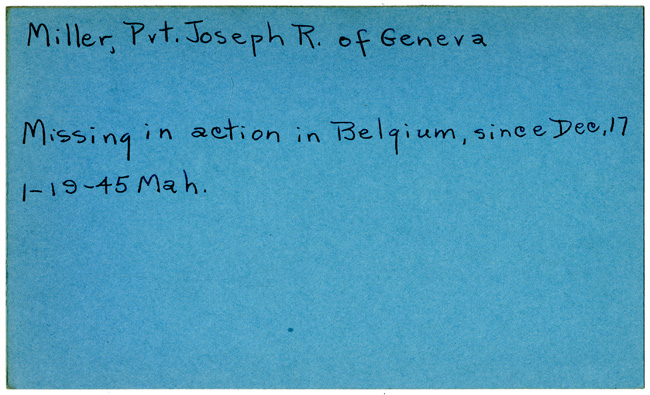 Miller, Pvt. Joseph R. of Geneva
Missing in action in Belgium, since Dec, 17
1-19-45 Mah.